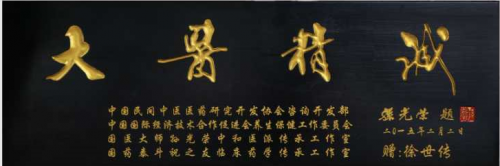 大醫精誠
中国民间中医医药研究开发协会咨询开发部
中国国际经济技术合作促进会养生保健工作委员会
国医大师孙光荣中和医派传承工作室
国药泰斗祝之友临朱药学传承工作室
孫光荣 题
二〇一五年二月二日
赠:徐世传